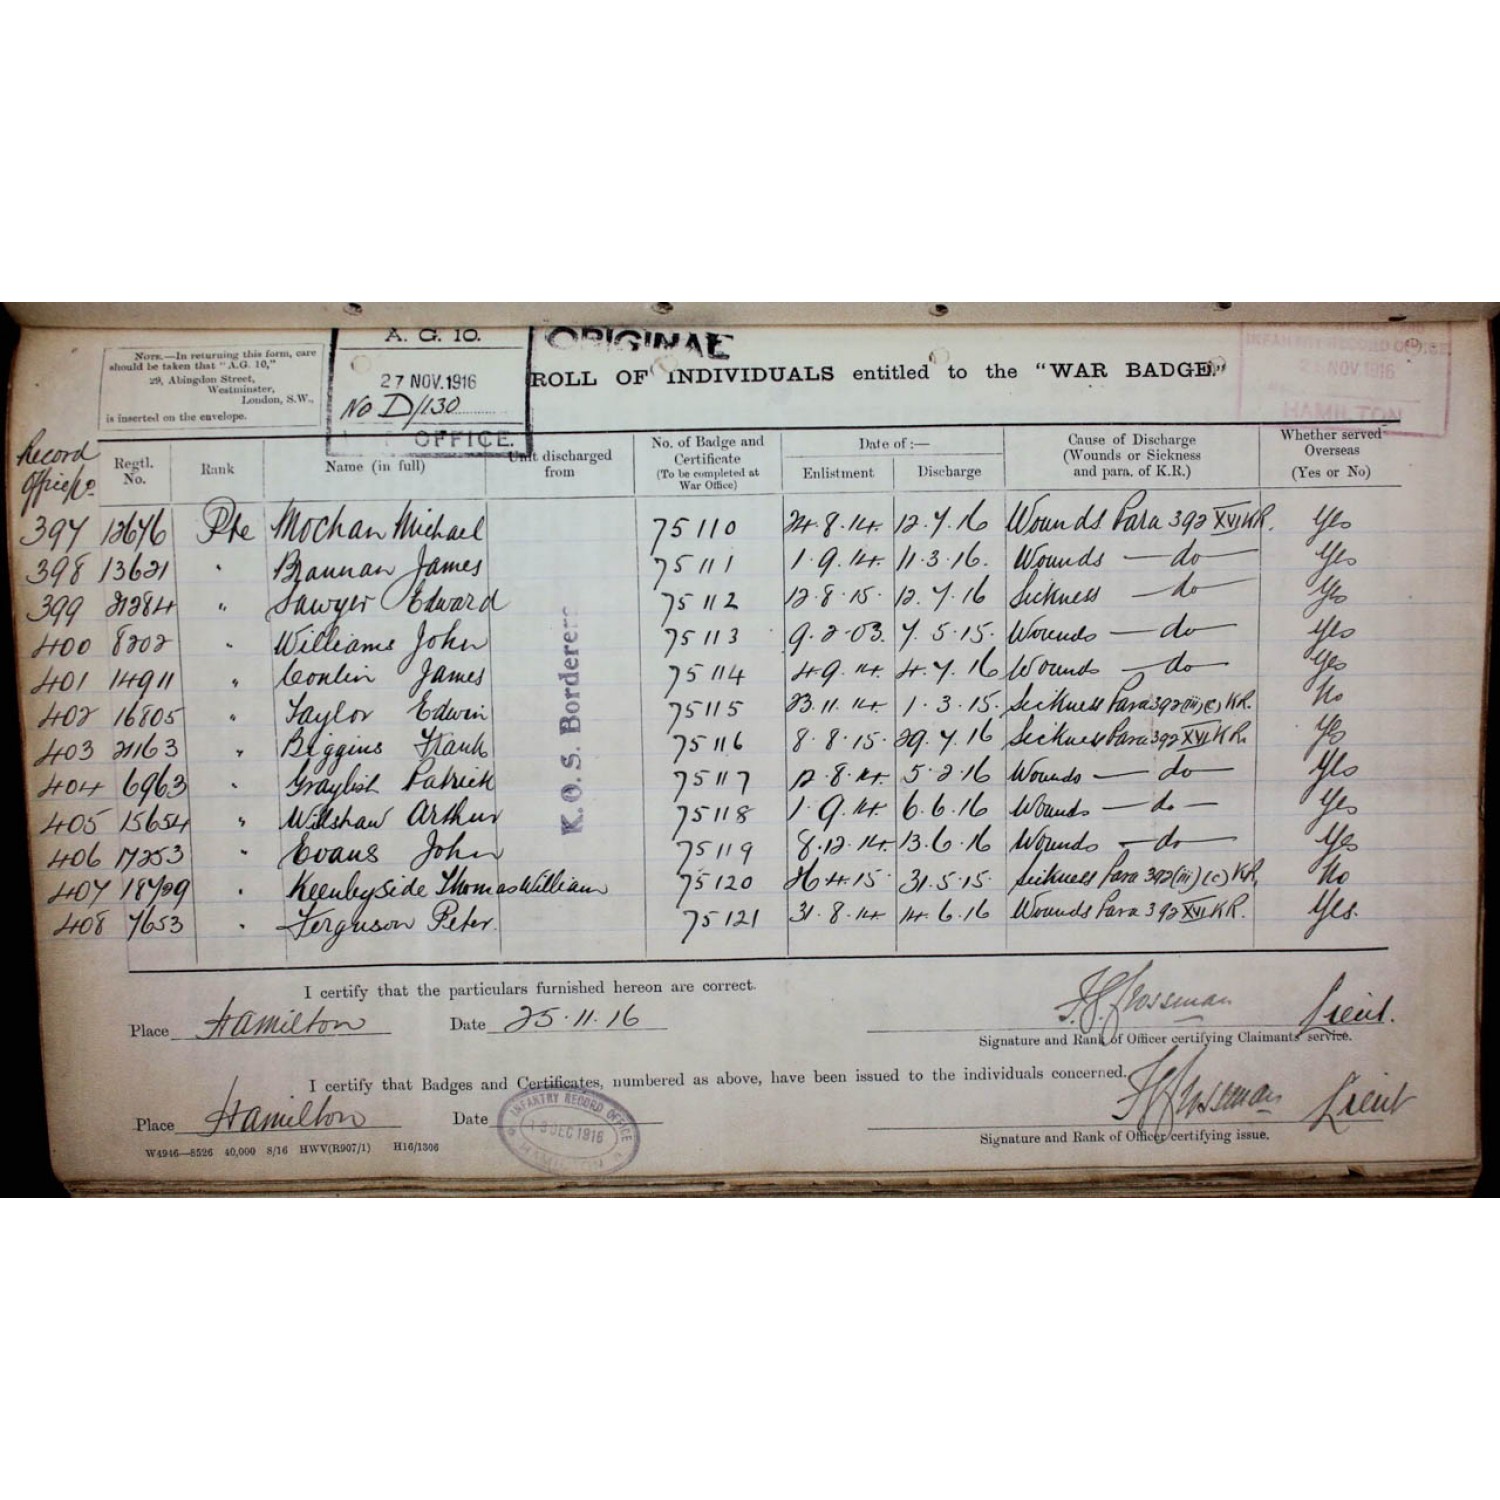 NOTE.—In returning this form, care
should be taken that "A.G. 10,"
29, Abingdon Street,
Westminster,
London, S.W.,
is inserted on the envelope.
A. G. 10.
27 NOV. 1916
No D/130
OFFICE.
ORIGINAL
ROLL OF INDIVIDUALS entitled to the "WAR BADGE."
INFANTRY RECORD OFFICE
27 NOV 1916
HAMILTON
Record Office No. Regtl. No. Rank Name (in full) Unit discharged from No. of Badge and Certificate (To be completed at War Office) Date of:— Enlistment Discharge Cause of Discharge (Wounds or Sickness and para. of K.R.) Whether served Overseas (Yes or No)
397 12676 Pte Mochan Michael 75110 24.8.14. 12.7.16 Wounds Para 392 XVI KR. Yes
398 13621 " Brannan James 75111 1.9.14. 11.3.16. Wounds — do — Yes
399 21284 " Sawyer Edward 75112 12.8.15. 12.7.16 Sickness — do — Yes
400 8202 " Williams John 75113 9.2.03. 7.5.15. Wounds — do — Yes
401 14911 " Conlin James 75114 4.9.14. 4.7.16 Wounds — do — Yes
402 16805 " Taylor Edwin 75115 23.11.14. 1.3.15. Sickness Para 392 (iii) (c) KR. No
403 21163 " Biggins Frank 75116 8.8.15. 29.7.16 Sickness Para 392 XVI KR. Yes
404 6963 " Graylish Patrick 75117 12.8.14. 5.2.16 Wounds — do — Yes
405 15654 " Willshaw Arthur 75118 1.9.14. 6.6.16 Wounds — do — Yes
406 17253 " Evans John 75119 8.12.14. 13.6.16 Wounds — do — Yes
407 18729 " Keenleyside Thomas William 75120 26.4.15 31.5.15. Sickness Para 392 (iii) (c) KR. No
408 7653 " Ferguson Peter. 75121 31.8.14 14.6.16 Wounds Para 392 XVI KR. Yes.
K. O. S. Borderers
I certify that the particulars furnished hereon are correct.
Place Hamilton Date 25.11.16 Lieut.
Signature and Rank of Officer certifying Claimants' service.
I certify that Badges and Certificates, numbered as above, have been issued to the individuals concerned.
Place Hamilton Date Lieut
INFANTRY RECORD OFFICE
DEC 1916
HAMILTON
Signature and Rank of Officer certifying issue.
W4946—8526 40,000 8/16 HWV(R907/1) H16/1306